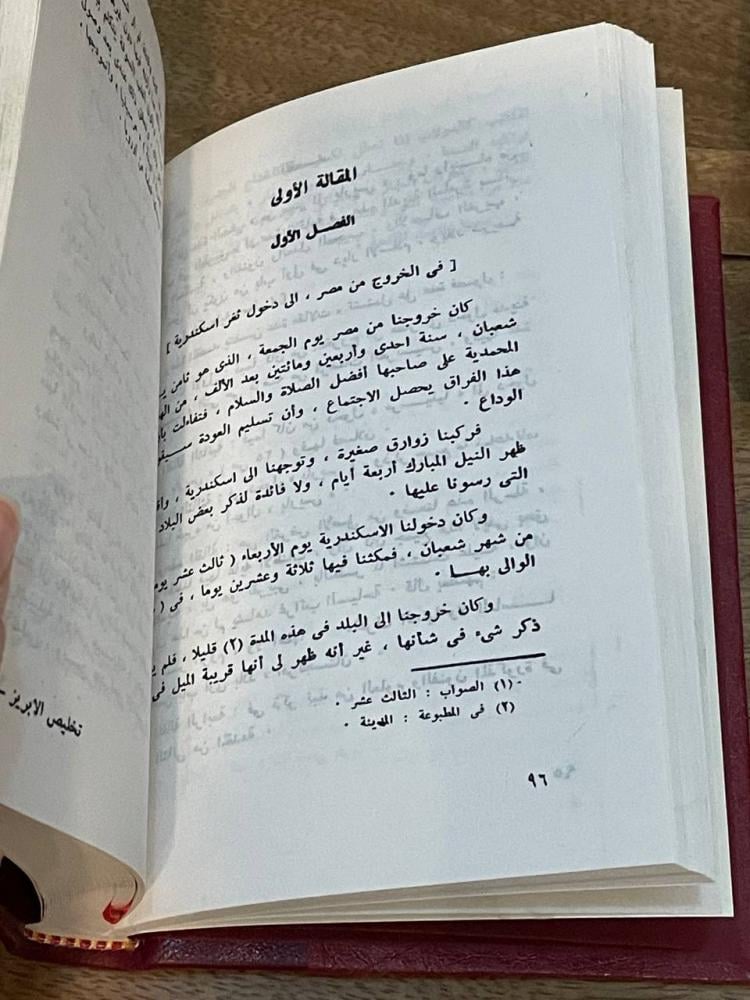 المقالة الأولى
الفصل الأول
[ فى الخروج من مصر ، الى دخول ثغر اسكندرية ]
كان خروجنا من مصر يوم الجمعة ، الذى هو ثامن
شعبان ، سنة احدى وأربعين ومائتين بعد الألف ، من
المحمدية على صاحبها أفضل الصلاة والسلام ، فتفاءلت
هذا الفراق يحصل الاجتماع ، وأن تسليم العودة
الوداع .
فركبنا زوارق صغيرة ، وتوجهنا الى اسكندرية ،
ظهر النيل المبارك أربعة أيام ، ولا فائدة لذكر بعض البلاد
التى رسونا عليها .
وكان دخولنا الاسكندرية يوم الأربعاء ( ثالث عشر
من شهر شعبان ، فمكثنا فيها ثلاثة وعشرين يوما ، فى (
الوالى بهـا .
وكان خروجنا الى البلد فى هذه المدة (٢) قليلا ، فلم
ذكر شىء فى شأنها ، غير أنه ظهر لى أنها قريبة الميل فى
(١) الصواب : الثالث عشر .
(٢) فى المطبوعة : المدينة .
٩٦
تخليص الابريز